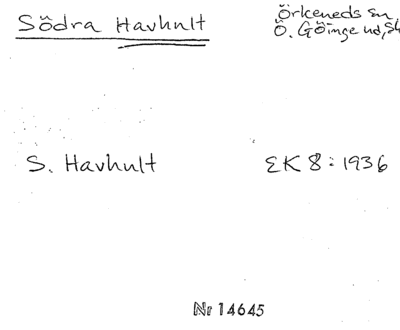 Södra Havhult
Örkeneds sn
Ö. Göinge hd, Sk
S. Havhult
EK 8: 1936
Nr 14645